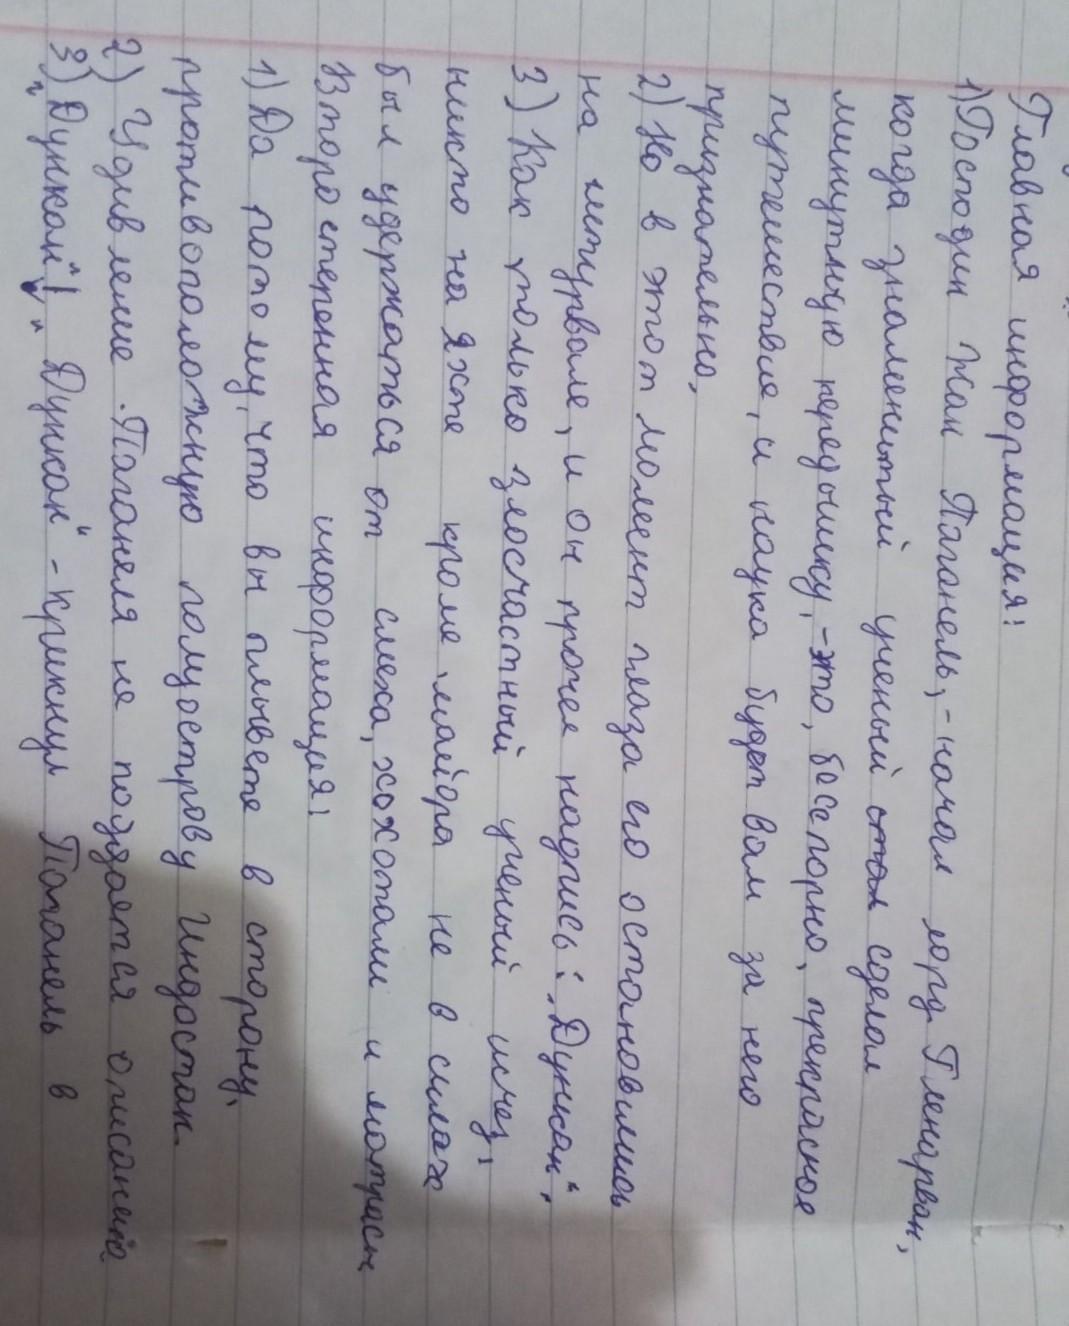 Главная информация:
1) Господин Жак Паганель, - начал лорд Гленарван,
когда знаменитый ученый сделал
минутную передышку, - это, бесспорно, прекрасное
путешествие, и наука будет вам за него
признательна,
2) Но в этот момент глаза его остановились
на штурвале, и он прочел надпись: „Дункан".
3) Как только злосчастный ученый исчез,
никто на яхте кроме майора не в силах
был удержаться от смеха, хохотали и матросы
Второстепенная информация:
1) Да потому, что вы плывете в сторону,
противоположную полуострову Индостан.
2) Удивление Паганеля не поддается описанию
3) "Дункан"! "Дункан" - крикнул Паганель в